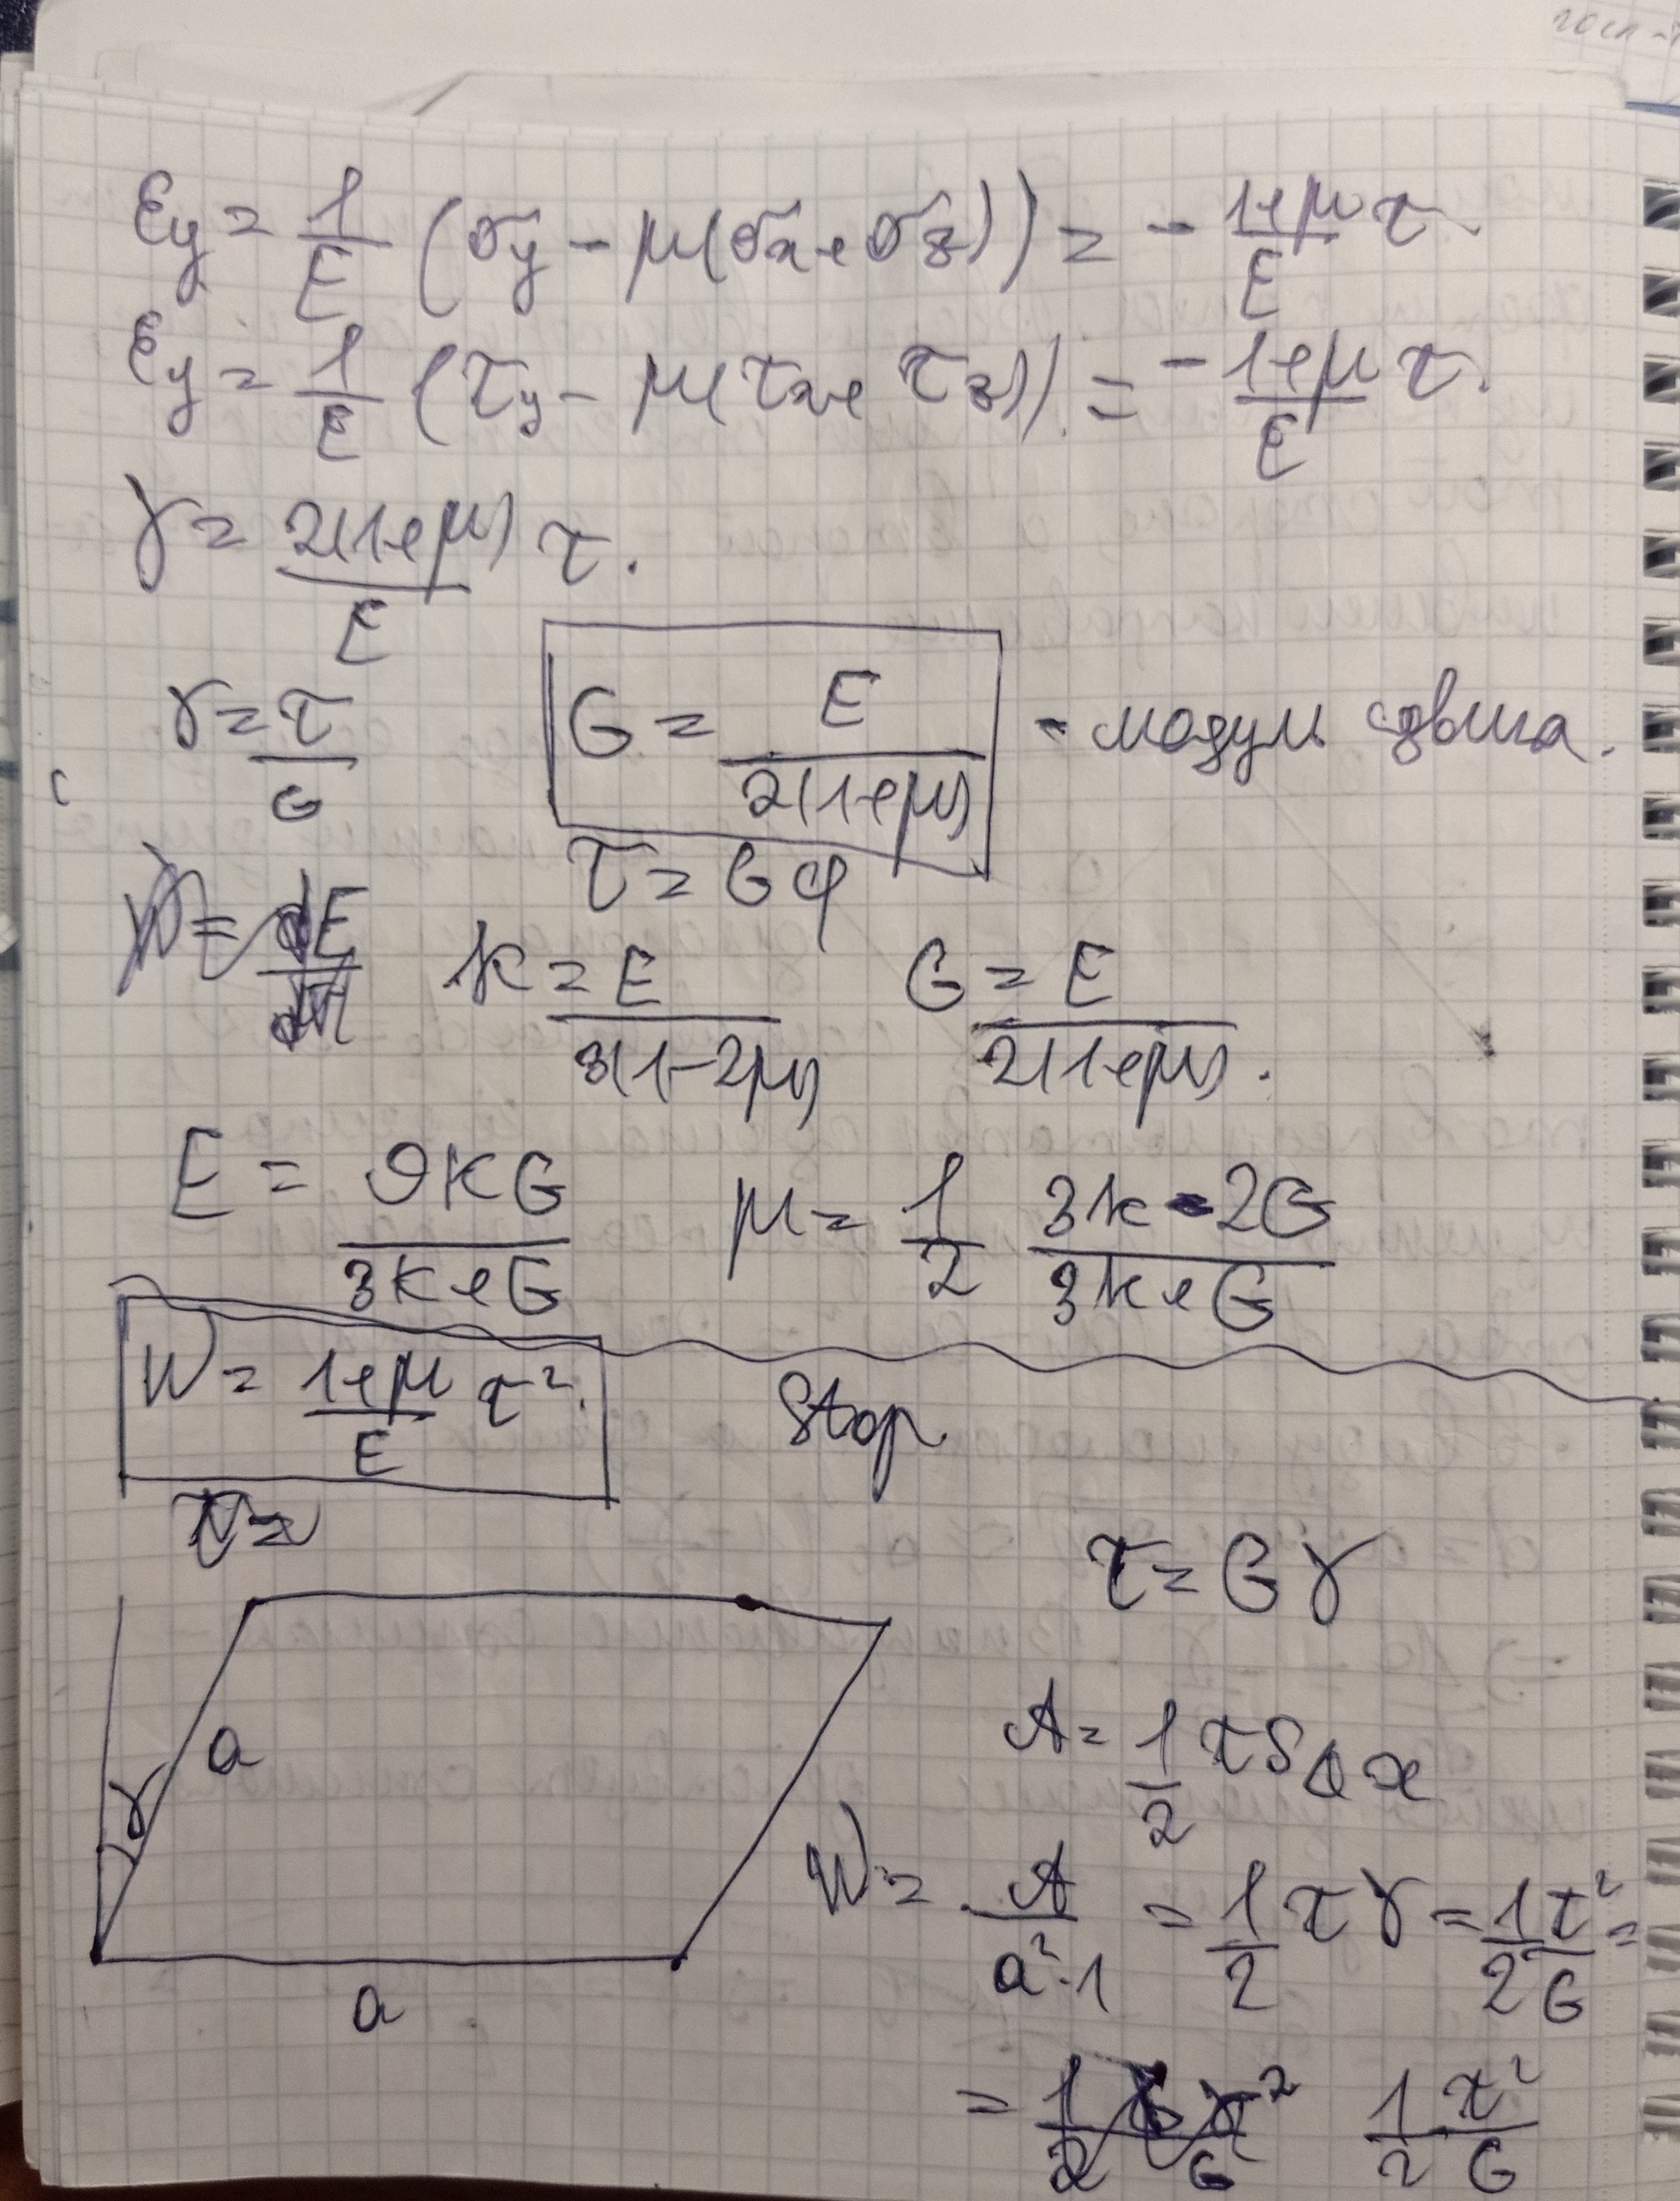 εy = 1/E (σy - μ(σx + σz)) = - (1+μ)/E τ.
εy = 1/E (τy - μ(τx + τz)) = - (1+μ)/E τ.
γ = 2(1+μ)/E τ.
γ = τ/G
G = E/(2(1+μ)) - модул сдвига.
τ = Gφ
K = E/(3(1-2μ))
G = E/(2(1+μ)).
E = 9KG/(3K+G)
μ = 1/2 (3K-2G)/(3K+G)
W = (1+μ)/E τ².
Stop
τ = Gγ
a
γ
a
A = 1/2 τSΔx
W = A/(a²·1) = 1/2 τγ = 1/2 τ²/G =
= 1/2 τ²/G